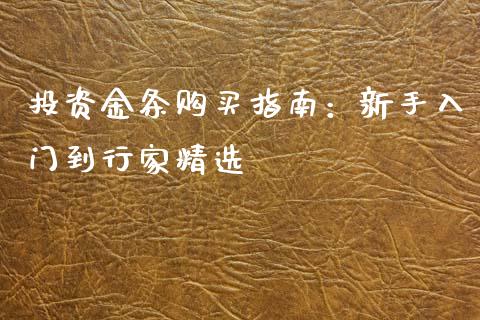 投资金条购买指南：新手入
门到行家精选